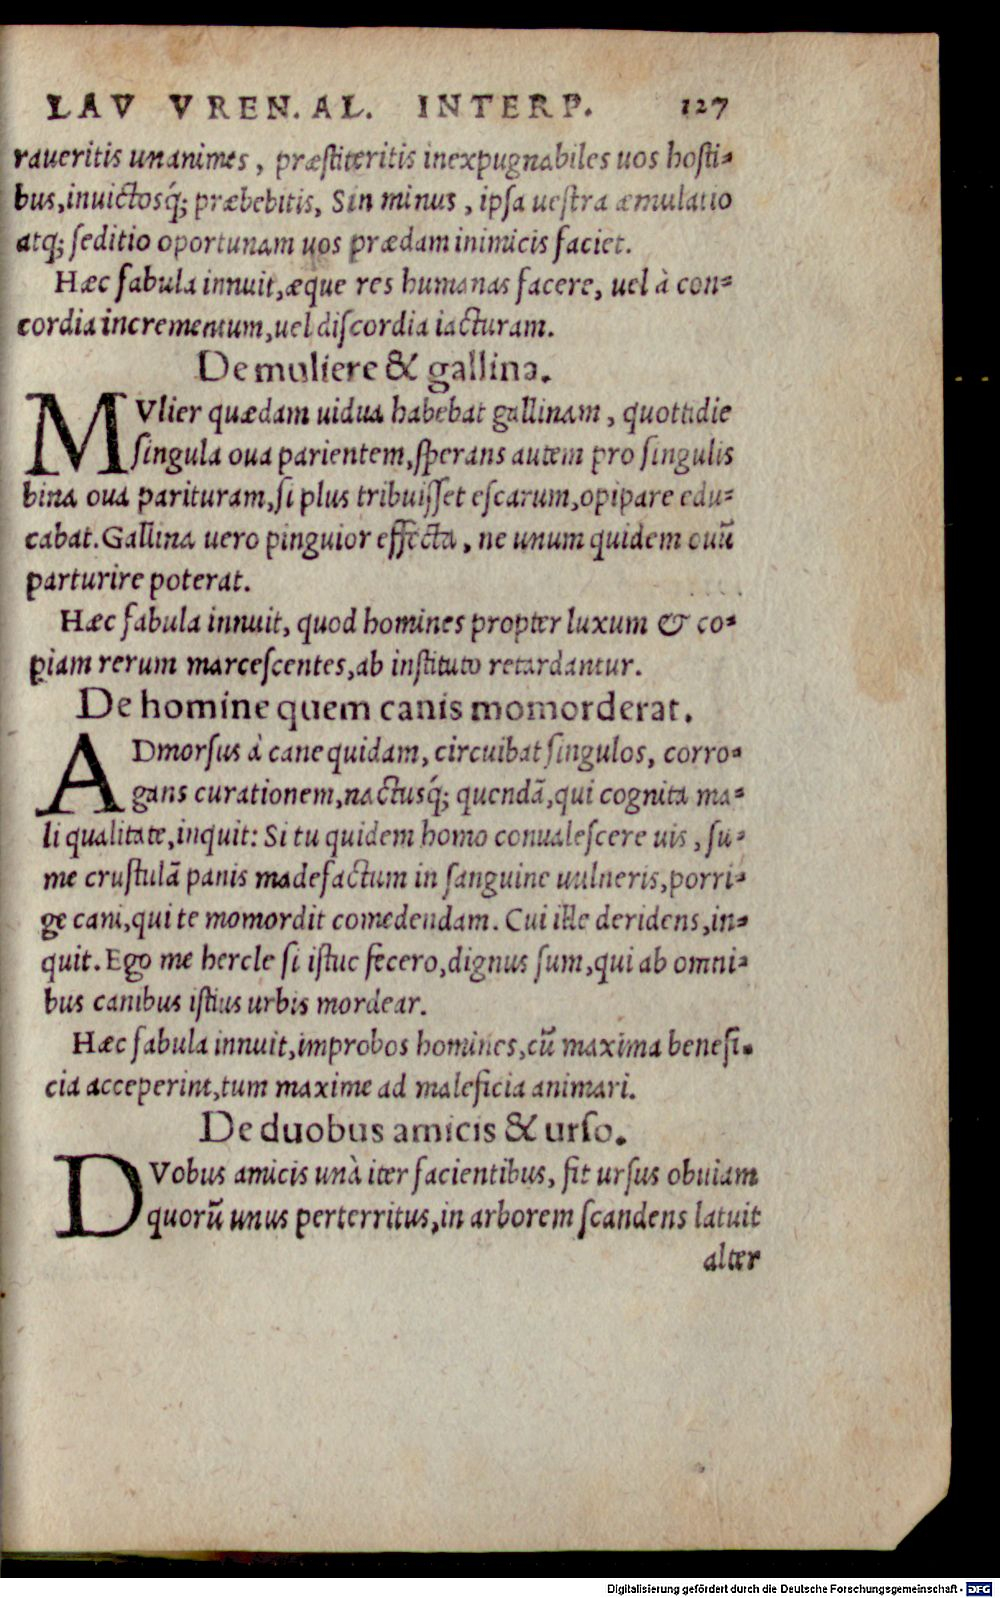 LAV VREN. AL. INTERP. 127
raueritis unanimes, præstiteritis inexpugnabiles uos hosti-
bus, inuictosq́; præbebitis, Sin minus, ipsa uestra æmulatio
atq; seditio oportunam uos prædam inimicis faciet.
Hæc fabula innuit, æque res humanas facere, uel à con-
cordia incrementum, uel discordia iacturam.
De muliere & gallina.
MVlier quædam uidua habebat gallinam, quottidie
singula oua parientem, sperans autem pro singulis
bina oua parituram, si plus tribuisset escarum, opipare edu-
cabat. Gallina uero pinguior effecta, ne unum quidem ouū
parturire poterat.
Hæc fabula innuit, quod homines propter luxum & co-
piam rerum marcescentes, ab instituto retardantur.
De homine quem canis momorderat.
ADmorsus à cane quidam, circuibat singulos, corro-
gans curationem, nactusq́; quendã, qui cognita ma-
li qualitate, inquit: Si tu quidem homo conualescere uis, su-
me crustulã panis madefactum in sanguine uulneris, porri-
ge cani, qui te momordit comedendam. Cui ille deridens, in-
quit. Ego me hercle si istuc fecero, dignus sum, qui ab omni-
bus canibus istius urbis mordear.
Hæc fabula innuit, improbos homines, cū maxima benefi-
cia acceperint, tum maxime ad maleficia animari.
De duobus amicis & urso.
DVobus amicis unà iter facientibus, fit ursus obuiam
quorū unus perterritus, in arborem scandens latuit
alter
Digitalisierung gefördert durch die Deutsche Forschungsgemeinschaft - DFG